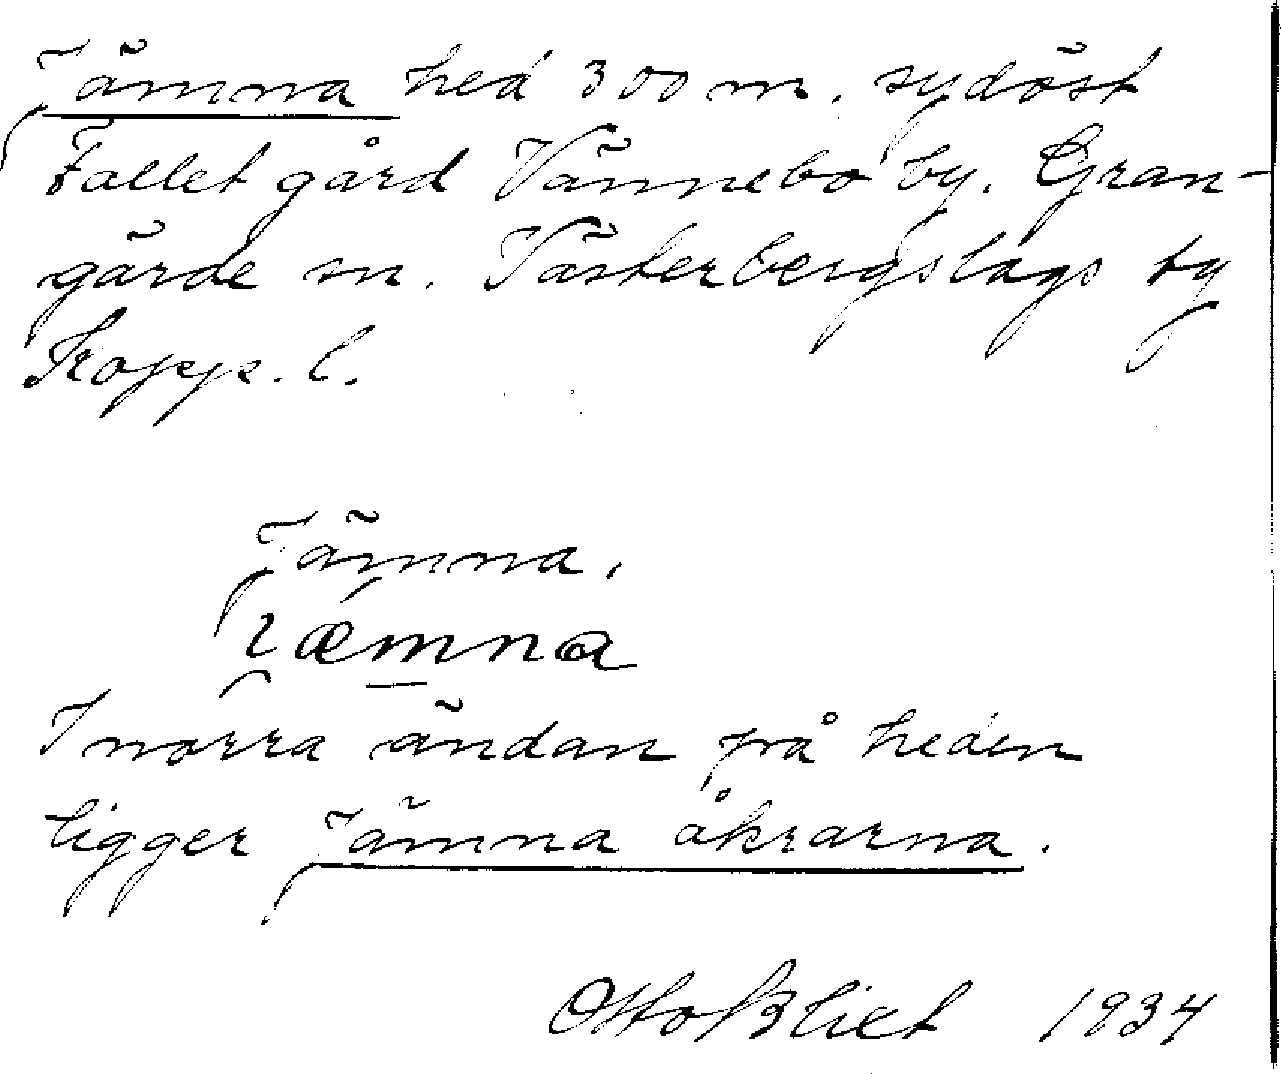 Jämna hed 300 m. sydöst
Fallet gård Vännebo by. Gran-
gärde sn. Västerbergslags tg
Kopp. l.
Jämna.
ɩæmna
I norra ändan på heden
ligger Jämna åkrarna.
Otto Blixt 1934